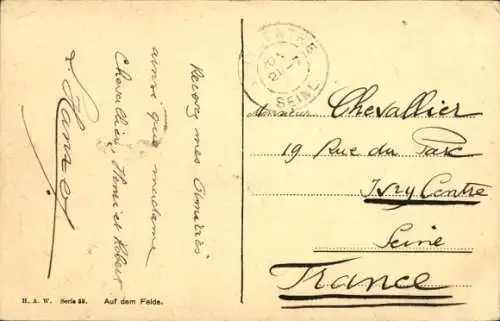 Recevez mes Amitiés
ainsi que madame
Chevallier, Henri et Robert
H. A. W. Serie 38. Auf dem Felde.
CENTRE
SEINE
Monsieur Chevallier
19 Rue du Parc
Ivry Centre
Seine
France